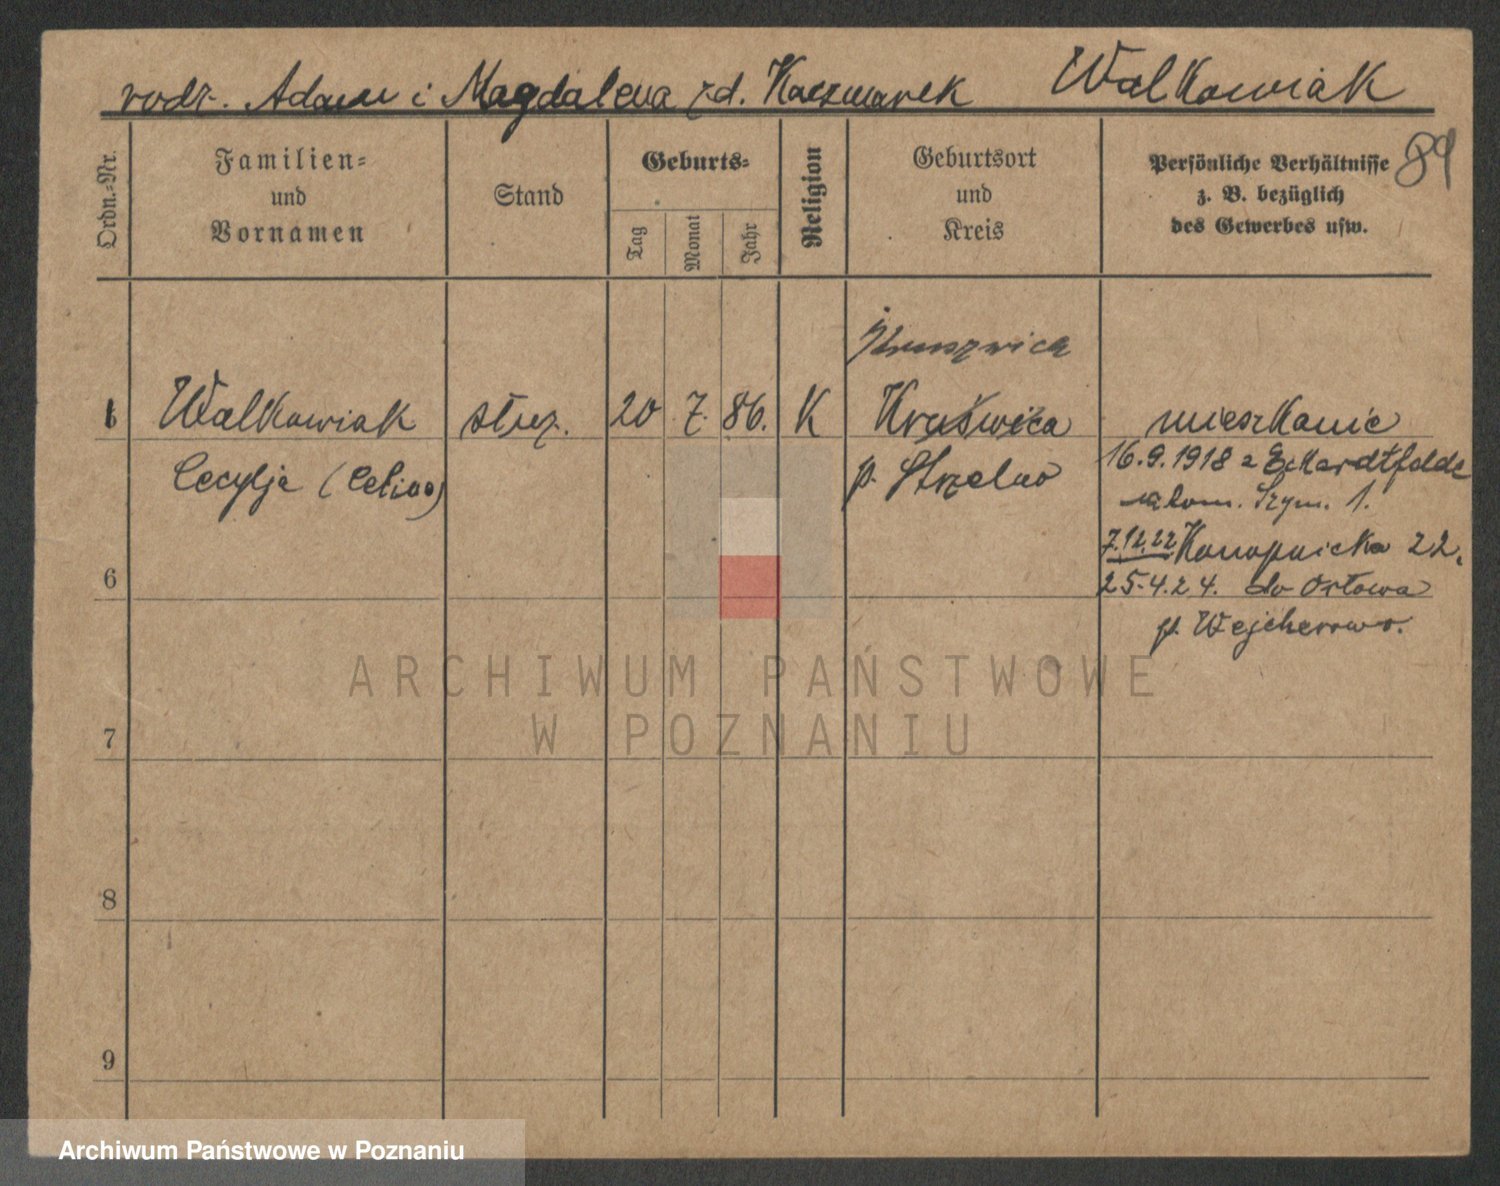 rodz. Adam i Magdalena zd. Kaczmarek Walkowiak
89
Ordn.-Nr.
Familien-
und
Vornamen
Stand
Geburts-
Tag
Monat
Jahr
Religion
Geburtsort
und
Kreis
Persönliche Verhältnisse
z. B. bezüglich
des Gewerbes usw.
Kruszwica
1 Walkowiak służ. 20 7. 86. K Kruświca mieszkanie
Cecylja (Celina) p. Strzelno 16.9.1918 z Eckardtfelde
Szym. 1.
7.12.22 Konopnicka 22.
6
25.4.24. do Orłowa
p. Wejcherowo.
7
8
9
ARCHIWUM PAŃSTWOWE
W POZNANIU
Archiwum Państwowe w Poznaniu